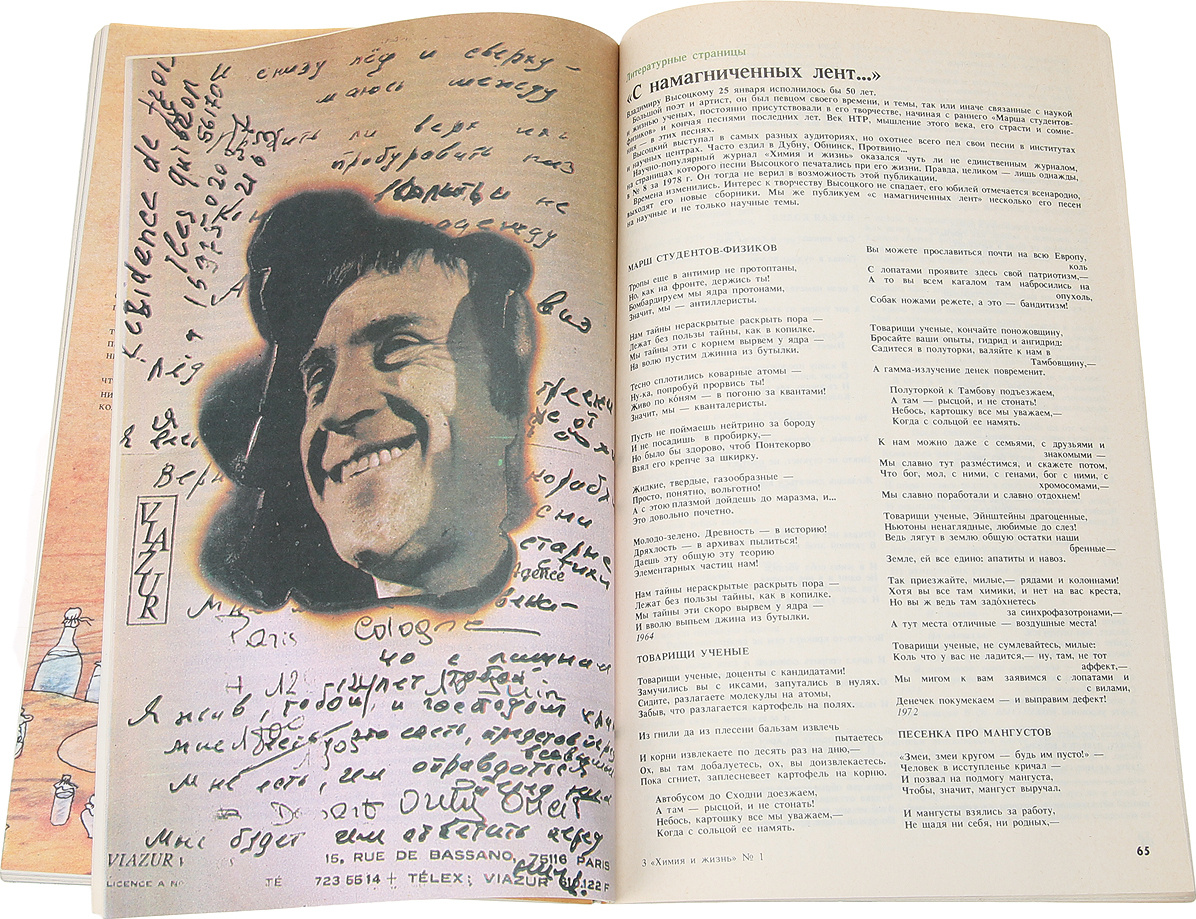 и снизу лёд и сверху –
маюсь между
ли верх иль
пробуровить низ
не
одежду
лёд
низ
Я
Верн
не от
корабл
сни
старые
VIAZUR
Agence
Paris
Cologne
но с лишним
12 лет
Я жив, тобой и господом храни
Мне есть, что спеть, представ перед
всевышним
Мне есть, чем оправдаться
Мне будет чем ответить перед
ним.
VIAZUR
15, RUE DE BASSANO, 75116 PARIS
LICENCE A N°
TÉ
723 55 14 + TÉLEX; VIAZUR 610.122 F
Литературные страницы
«С намагниченных лент...»
Владимиру Высоцкому 25 января исполнилось бы 50 лет.
Большой поэт и артист, он был певцом своего времени, и темы, так или иначе связанные с наукой
и жизнью ученых, постоянно присутствовали в его творчестве, начиная с раннего «Марша студентов-
физиков» и кончая песнями последних лет. Век НТР, мышление этого века, его страсти и сомне-
ния — в этих песнях.
Высоцкий выступал в самых разных аудиториях, но охотнее всего пел свои песни в институтах
и научных центрах. Часто ездил в Дубну, Обнинск, Протвино...
Научно-популярный журнал «Химия и жизнь» оказался чуть ли не единственным журналом,
на страницах которого песни Высоцкого печатались при его жизни. Правда, целиком — лишь однажды,
в № 8 за 1978 г. Он тогда не верил в возможность этой публикации.
Времена изменились. Интерес к творчеству Высоцкого не спадает, его юбилей отмечается всенародно,
выходят его новые сборники. Мы же публикуем «с намагниченных лент» несколько его песен
на научные и не только научные темы.
МАРШ СТУДЕНТОВ-ФИЗИКОВ
Тропы еще в антимир не протоптаны,
Но, как на фронте, держись ты!
Бомбардируем мы ядра протонами,
Значит, мы — антиллеристы.
Нам тайны нераскрытые раскрыть пора —
Лежат без пользы тайны, как в копилке.
Мы тайны эти с корнем вырвем у ядра —
На волю пустим джинна из бутылки.
Тесно сплотились коварные атомы —
Ну-ка, попробуй прорвись ты!
Живо по ко́ням — в погоню за квантами!
Значит, мы — кванталеристы.
Пусть не поймаешь нейтрино за бороду
И не посадишь в пробирку,—
Но было бы здорово, чтоб Понтекорво
Взял его крепче за шкирку.
Жидкие, твердые, газообразные —
Просто, понятно, вольготно!
А с этою плазмой дойдешь до маразма, и...
Это довольно почетно.
Молодо-зелено. Древность — в историю!
Дряхлость — в архивах пылиться!
Даешь эту общую эту теорию
Элементарных частиц нам!
Нам тайны нераскрытые раскрыть пора —
Лежат без пользы тайны, как в копилке.
Мы тайны эти скоро вырвем у ядра —
И вволю выпьем джина из бутылки.
1964
ТОВАРИЩИ УЧЕНЫЕ
Товарищи ученые, доценты с кандидатами!
Замучились вы с иксами, запутались в нулях.
Сидите, разлагаете молекулы на атомы,
Забыв, что разлагается картофель на полях.
Из гнили да из плесени бальзам извлечь
пытаетесь
И корни извлекаете по десять раз на дню,—
Ох, вы там добалуетесь, ох, вы доизвлекаетесь.
Пока сгниет, заплесневеет картофель на корню.
Автобусом до Сходни доезжаем,
А там — рысцой, и не стонать!
Небось, картошку все мы уважаем,—
Когда с сольцой ее намять.
Вы можете прославиться почти на всю Европу,
коль
С лопатами проявите здесь свой патриотизм,—
А то вы всем кагалом там набросились на
опухоль,
Собак ножами режете, а это — бандитизм!
Товарищи ученые, кончайте поножовщину,
Бросайте ваши опыты, гидрид и ангидрид:
Садитеся в полуторки, валяйте к нам в
Тамбовщину,—
А гамма-излучение денек повременит.
Полуторкой к Тамбову подъезжаем,
А там — рысцой, и не стонать!
Небось, картошку все мы уважаем,—
Когда с сольцой ее намять.
К нам можно даже с семьями, с друзьями и
знакомыми —
Мы славно тут разме́стимся, и скажете потом,
Что бог, мол, с ними, с генами, бог с ними, с
хромосомами,—
Мы славно поработали и славно отдохнем!
Товарищи ученые, Эйнштейны драгоценные,
Ньютоны ненаглядные, любимые до слез!
Ведь лягут в землю общую остатки наши
бренные—
Земле, ей все едино: апатиты и навоз.
Так приезжайте, милые,— рядами и колоннами!
Хотя вы все там химики, и нет на вас креста,
Но вы ж ведь там задо́хнетесь
за синхрофазотронами,—
А тут места отличные — воздушные места!
Товарищи ученые, не сумлевайтесь, милые:
Коль что у вас не ладится,— ну, там, не тот
аффект,—
Мы мигом к вам заявимся с лопатами и
с вилами,
Денечек покумекаем — и выправим дефект!
1972
ПЕСЕНКА ПРО МАНГУСТОВ
«Змеи, змеи кругом — будь им пусто!» —
Человек в исступленье кричал —
И позвал на подмогу мангуста,
Чтобы, значит, мангуст выручал.
И мангусты взялись за работу,
Не щадя ни себя, ни родных,—
3 «Химия и жизнь» № 1
65